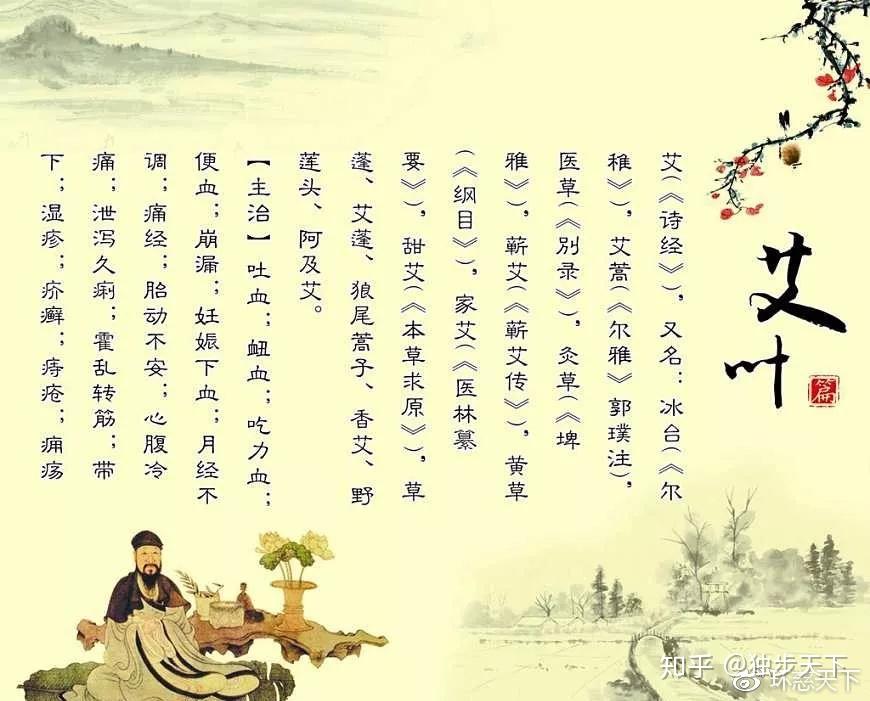 艾叶
篇
艾(《诗经》)，又名：冰台(《尔
稚》)，艾蒿(《尔雅》郭璞注)，
医草(《别录》)，灸草(《埤
雅》)，蕲艾(《蕲艾传》)，黄草
(《纲目》)，家艾(《医林纂
要》)，甜艾(《本草求原》)，草
蓬、艾蓬、狼尾蒿子、香艾、野
莲头、阿及艾。
【主治】吐血；衄血；吃力血；
便血；崩漏；妊娠下血；月经不
调；痛经；胎动不安；心腹冷
痛；泄泻久痢；霍乱转筋；带
下；湿疹；疥癣；痔疮；痈疡
知乎 @独步天下
天下